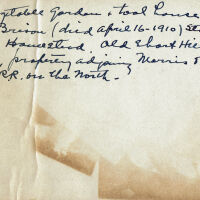 getable Garden & tool house
Brison (died April 16-1910)
Homestead. Old Short Hi
, property adjoing Morris &
RR. on the North.